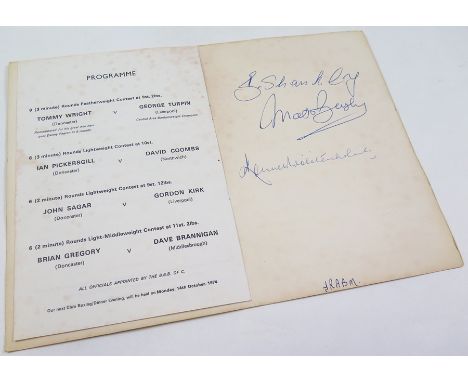 PROGRAMME
8 (3 minute) Rounds Featherweight Contest at 9st. 2lbs.
TOMMY WRIGHT V GEORGE TURPIN
(Doncaster) (Liverpool)
Central Area Bantamweight Champion
6 (3 minute) Rounds Lightweight Contest at 10st.
IAN PICKERSGILL V DAVID COOMBS
(Doncaster) (Northwich)
6 (2 minute) Rounds Lightweight Contest at 9st. 12lbs.
JOHN SAGAR V GORDON KIRK
(Doncaster) (Liverpool)
6 (2 minute) Rounds Light-Middleweight Contest at 11st. 2lbs.
BRIAN GREGORY V DAVE BRANNIGAN
(Doncaster) (Middlesbrough)
ALL OFFICIALS APPOINTED BY THE B.B.B. OF C.
Our next Club Boxing/Dinner Evening, will be held on Monday, 14th October, 1974
B. Shankly
Matt Busby